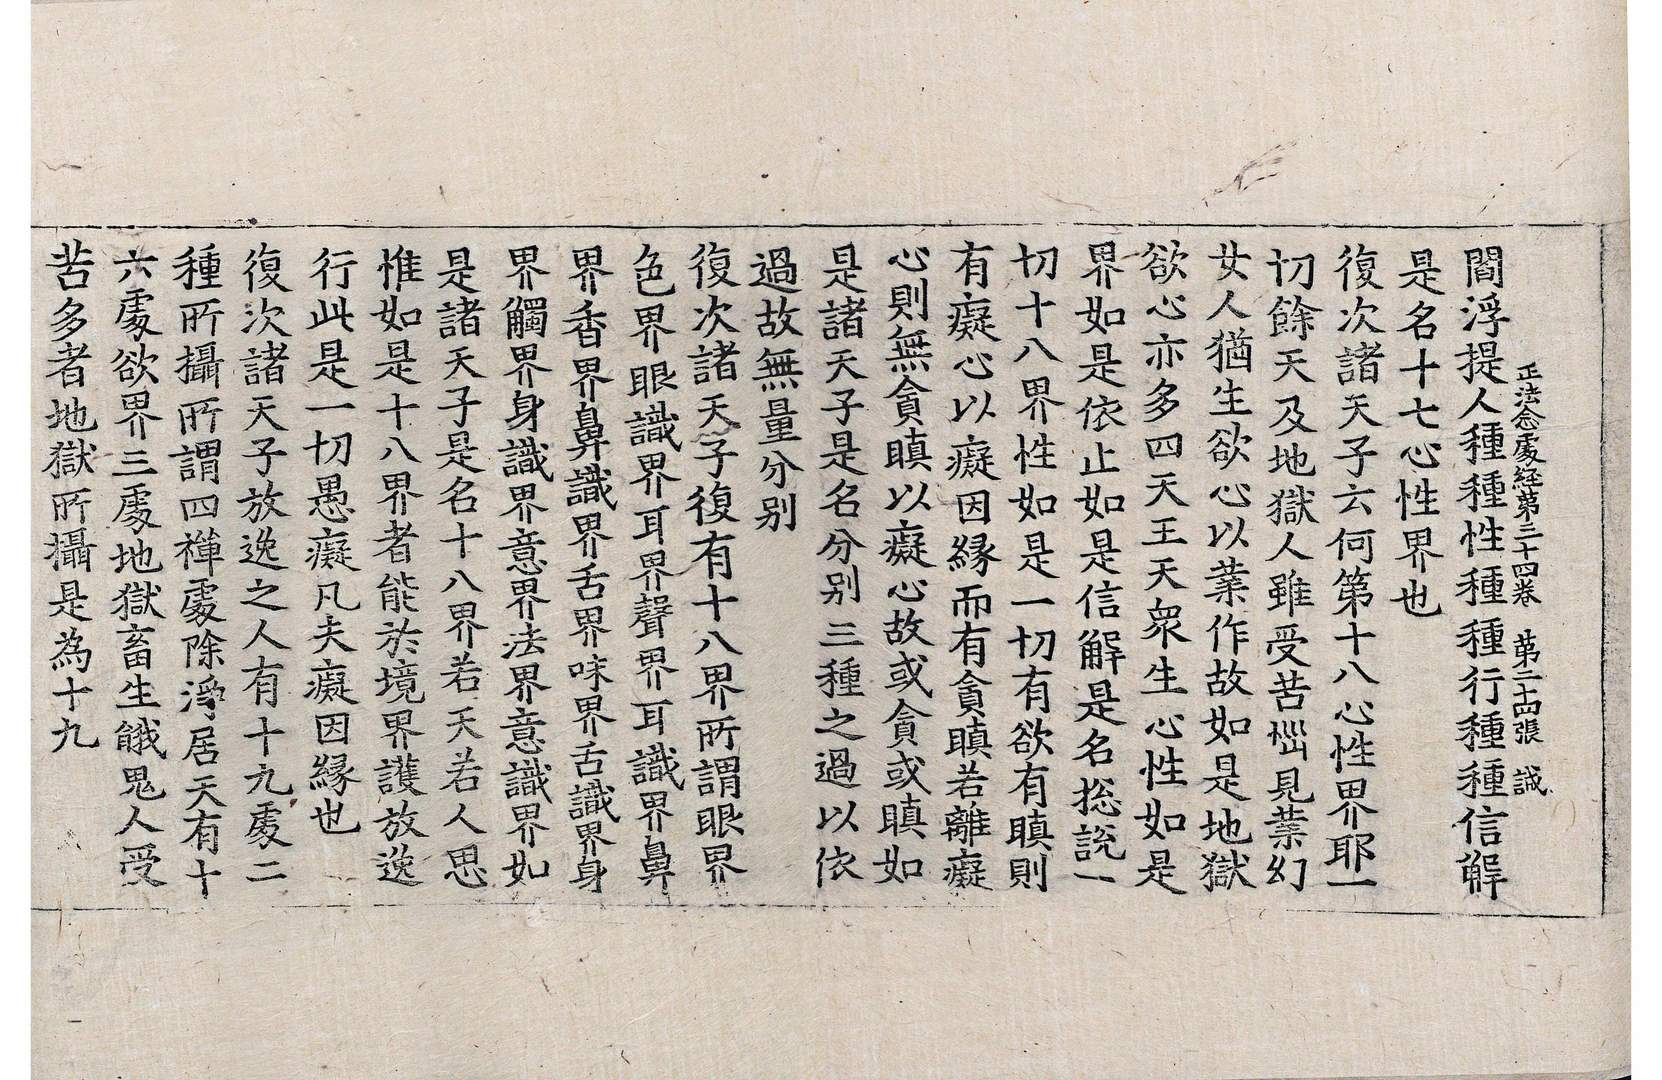 正法念處経第三十四卷 第二十四張 誠
閻浮提人種種性種種行種種信解
是名十七心性界也
復次諸天子云何第十八心性界耶一
切餘天及地獄人雖受苦惱見業幻
女人猶生欲心以業作故如是地獄
欲心亦多四天王天衆生心性如是
界如是依止如是信解是名捴說一
切十八界性如是一切有欲有瞋則
有癡心以癡因緣而有貪瞋若離癡
心則無貪瞋以癡心故或貪或瞋如
是諸天子是名分別三種之過以依
過故無量分別
復次諸天子復有十八界所謂眼界
色界眼識界耳界聲界耳識界鼻
界香界鼻識界舌界味界舌識界身
界觸界身識界意界法界意識界如
是諸天子是名十八界若天若人思
惟如是十八界者能於境界護放逸
行此是一切愚癡凡夫癡因緣也
復次諸天子放逸之人有十九處二
種所攝所謂四禪處除淨居天有十
六處欲界三處地獄畜生餓鬼人受
苦多者地獄所攝是為十九